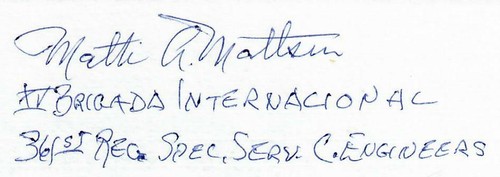 Matti A. Mattson
XV BRIGADA INTERNACIONAL
361ST REG. SPEC. SERV. C. ENGINEERS